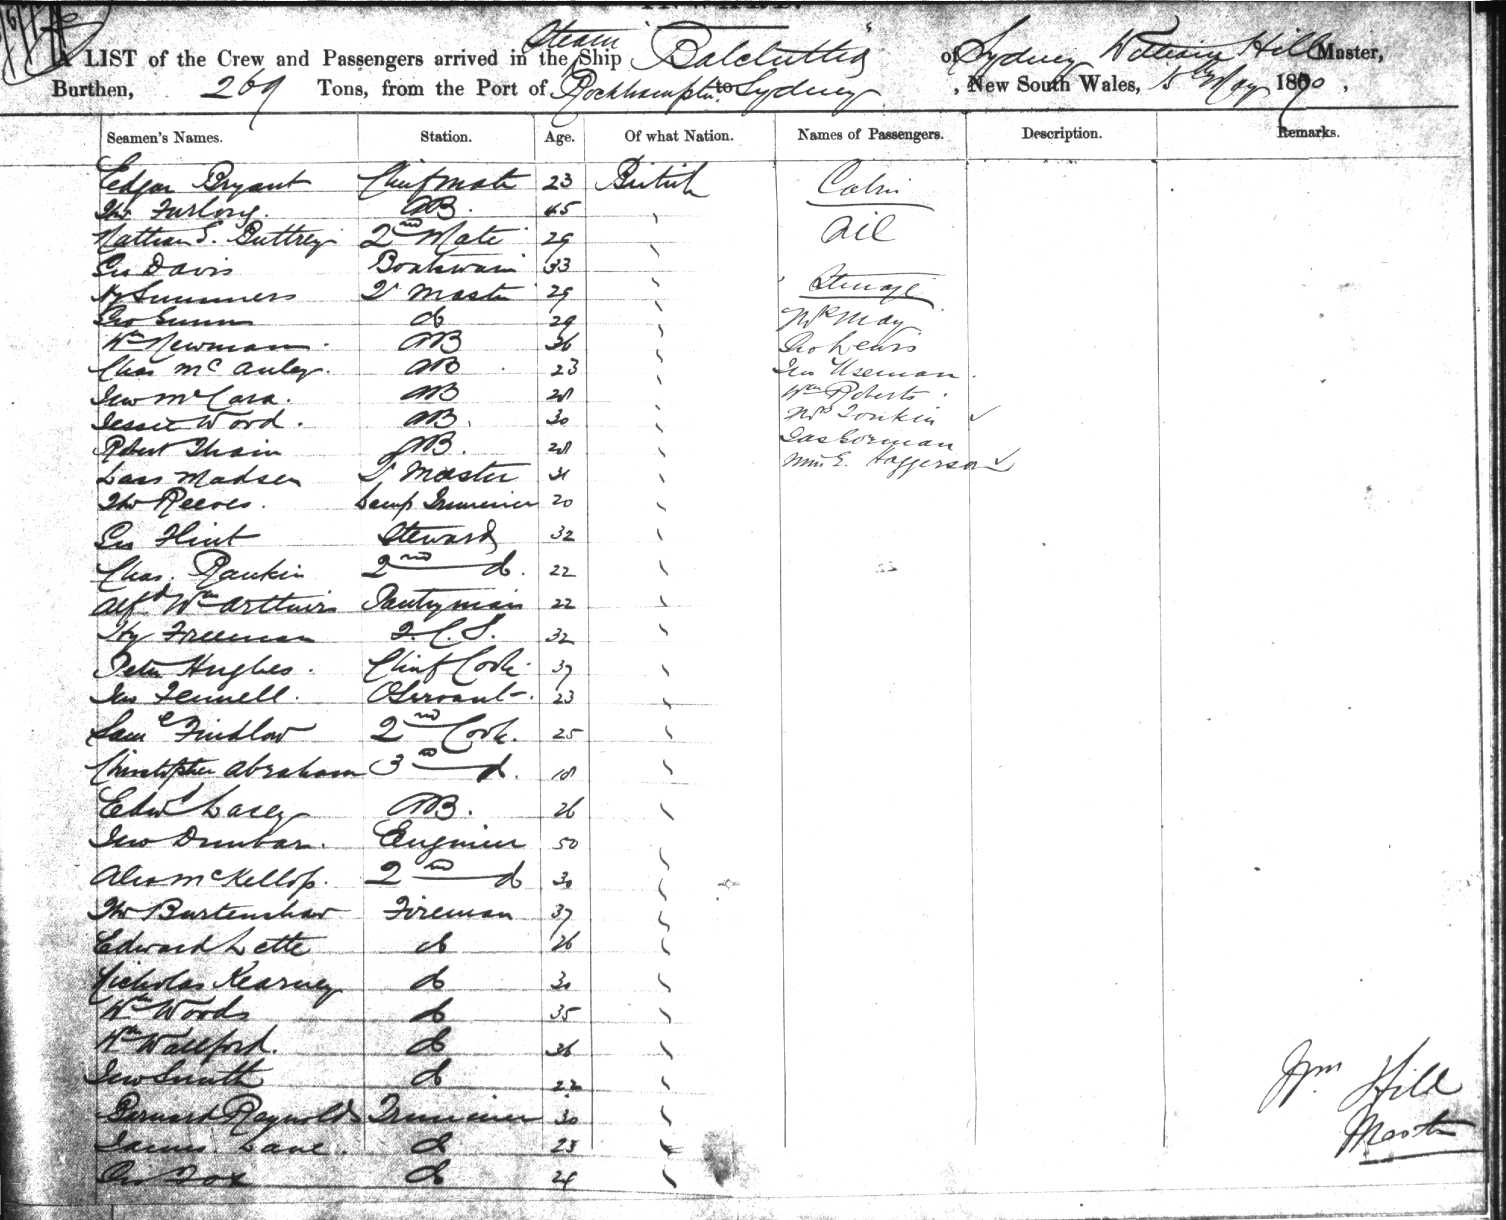 INWARD.
A LIST of the Crew and Passengers arrived in the Steam Ship Balclutha of Sydney William Hill Master,
Burthen, 269 Tons, from the Port of Rockhampton to Sydney, New South Wales, May 1870,
Seamen's Names. Station. Age. Of what Nation. Names of Passengers. Description. Remarks.
Edgar Bryant Chief Mate 23 British Cabin
Thos Furlong. AB. 45
Nathan S. Buttrey 2nd Mate 29 Nil
Geo Davis Boatswain 33
Hy Summers Qr Master 29 Steerage
Geo Gunn do 29 Mrs May
Wm Newman AB 36 Geo Lewis
Chas McAuley. AB 23 Jno Useman.
Jno McCara. AB 28 Wm Roberts.
Jessie Wood. AB. 30 Mrs Tonkin ✓
Robert Thain AB. 28 Jas Gorman
Lars Madsen Qr Master 31 Wm E. Haggerson ✓
Thos Reeves. Lamp Trimmer 20
Geo Flint Steward 32
Chas. Rankin 2nd do. 22
Alfd Wm Arthurs Pantryman 22
Hy Freeman F.C.S. 32
Peter Hughes. Chief Cook. 37
Jno Fennell. Servant. 23
Saml Findlow 2nd Cook. 25
Christopher Abraham 3rd do. 18
Edwd Lacey AB. 26
Jno Dunbar. Engineer 50
Alex McKellop. 2nd do 30
Thos Burtenshaw Fireman 37
Edward Lette do 26
Nicholas Kearney do 30
Wm Woods do 35
Wm Wallford. do 36
Jno Smith do 22
Bernard Reynolds Trimmer 30
James Lane. do 23
Geo Fox do 24
Wm Hill
Master